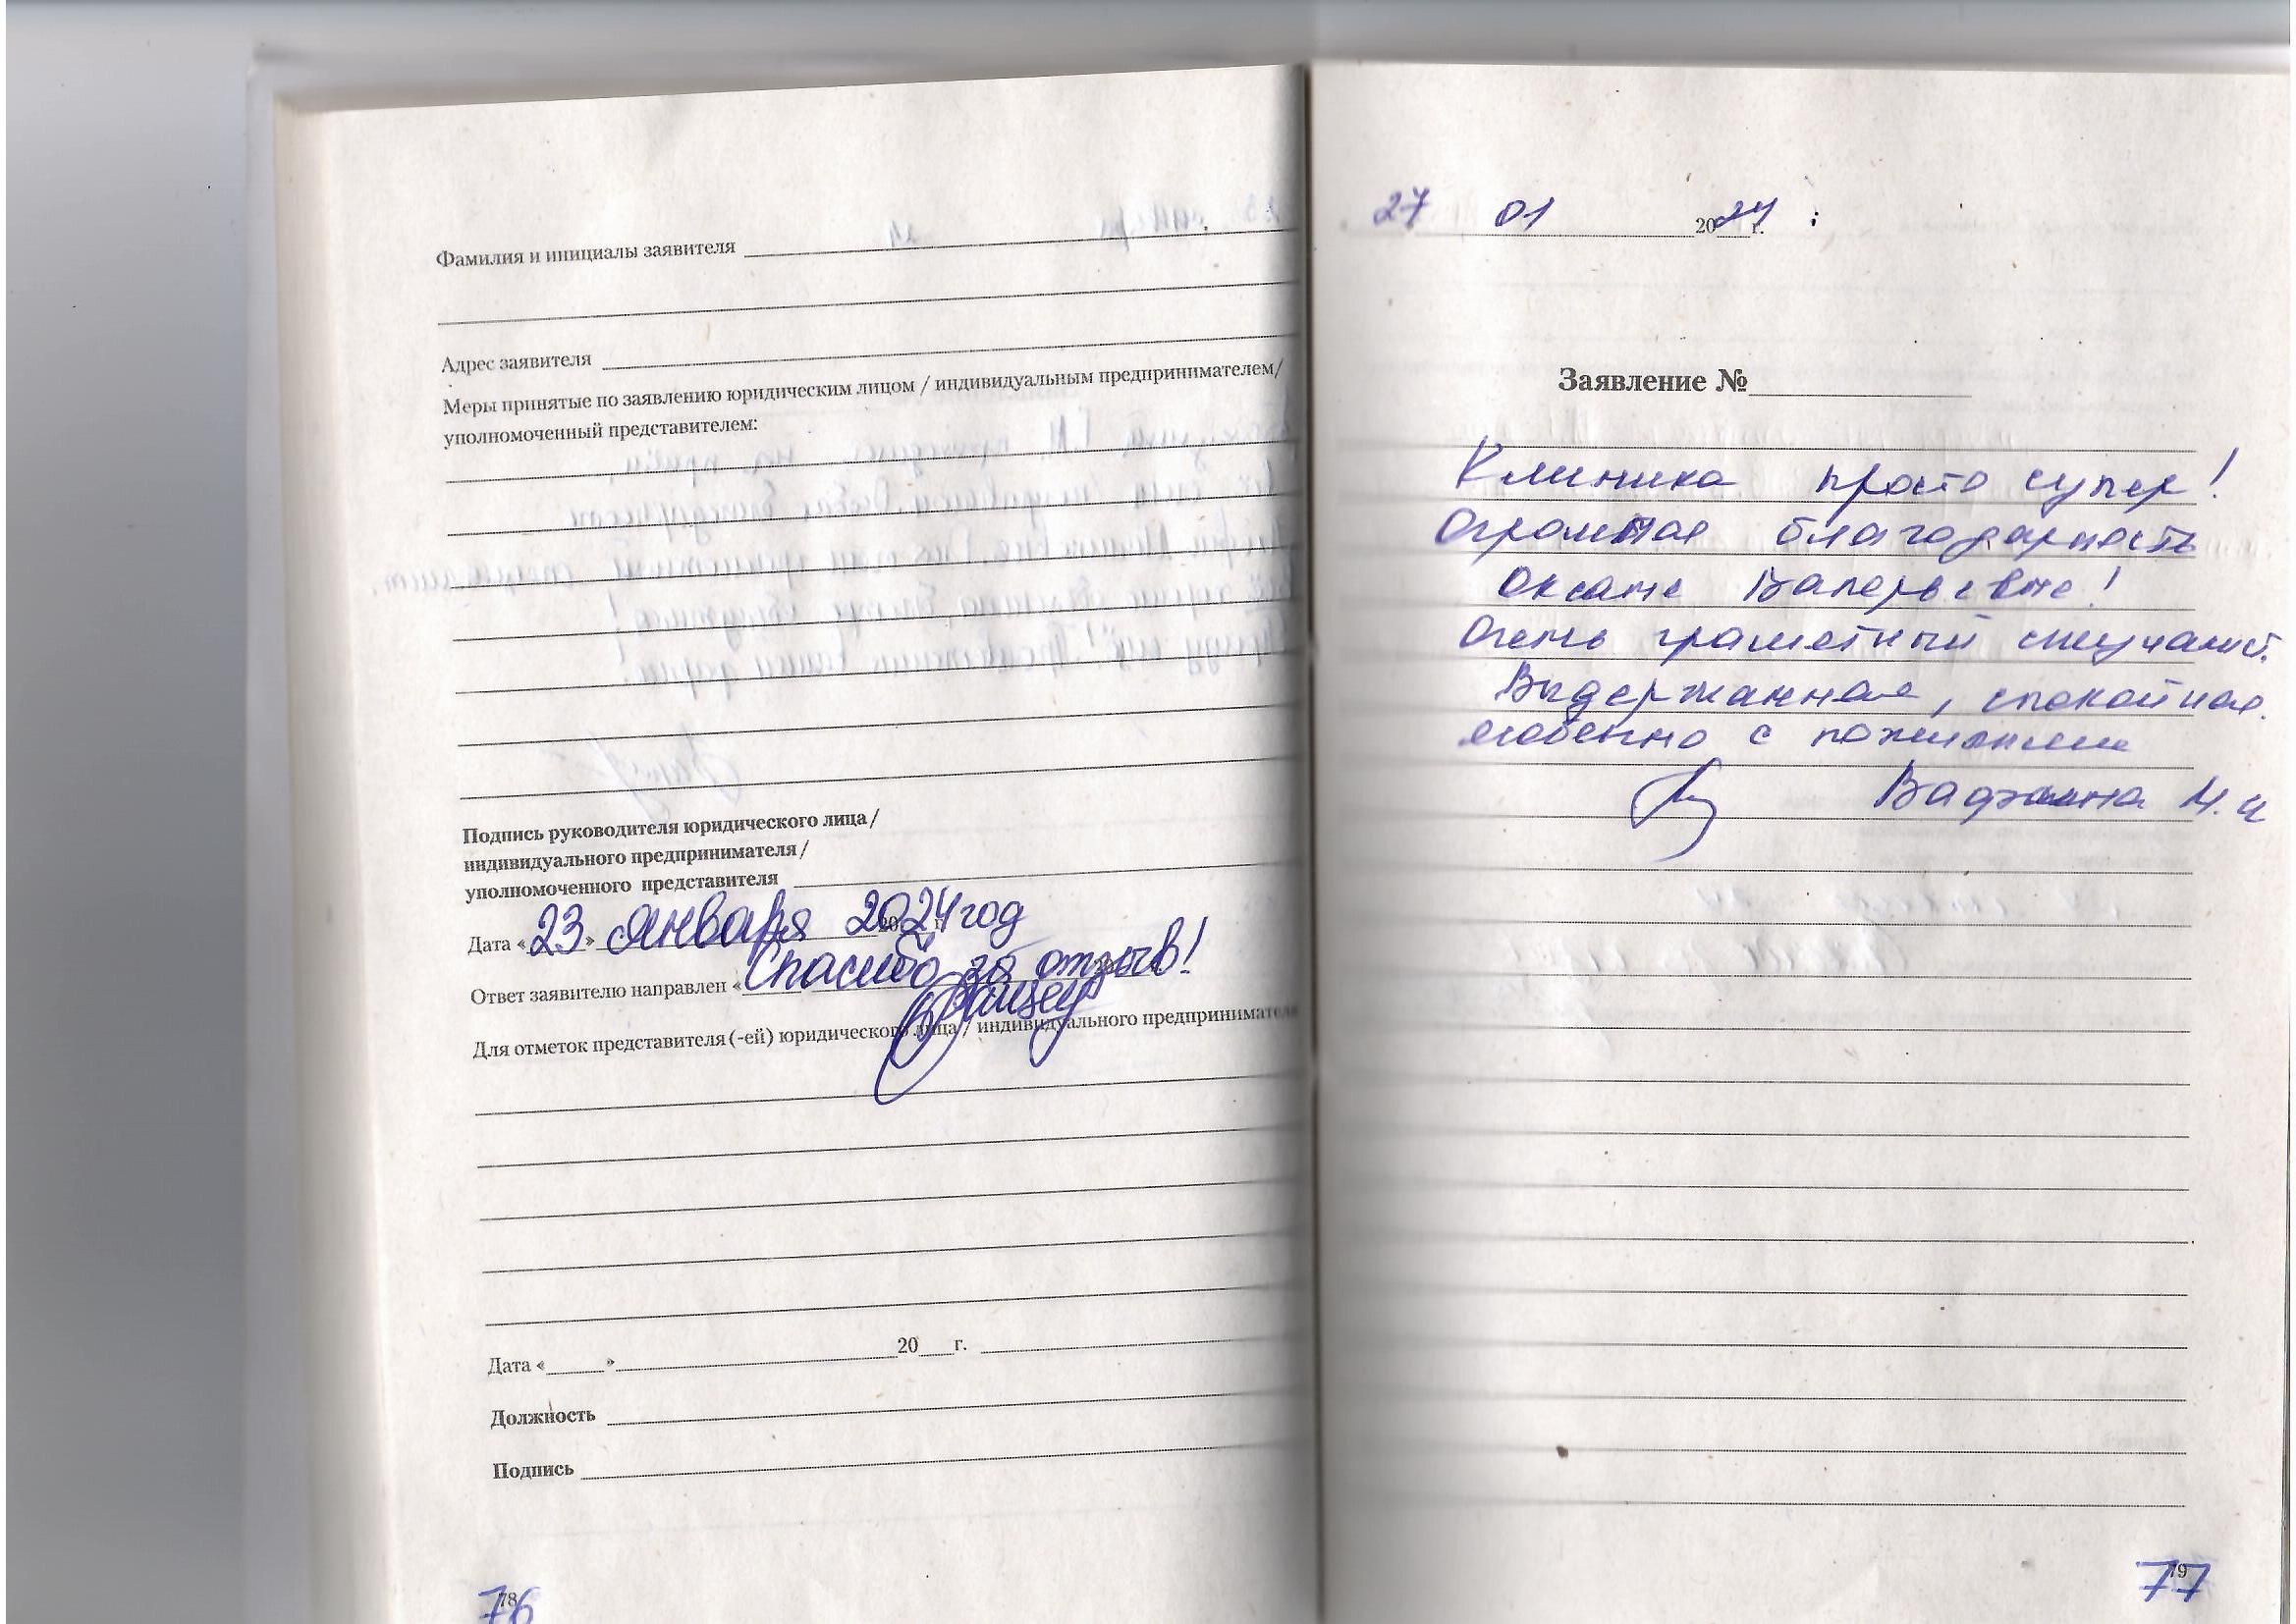 Фамилия и инициалы заявителя
Адрес заявителя
Меры принятые по заявлению юридическим лицом / индивидуальным предпринимателем/
уполномоченный представителем:
Подпись руководителя юридического лица /
индивидуального предпринимателя /
уполномоченного представителя
Дата «23» января 2024 год
Спасибо за отзыв!
Ответ заявителю направлен «
Для отметок представителя (-ей) юридического лица / индивидуального предпринимателя
Дата «____» 20__г.
Должность
Подпись
78
76
27 01 2024 г.
Заявление №
Клиника просто супер!
Огромная благодарность
Оксане Валерьевне!
Очень грамотный
Выдержанная, спокойная.
особенно с пожилыми
79
77